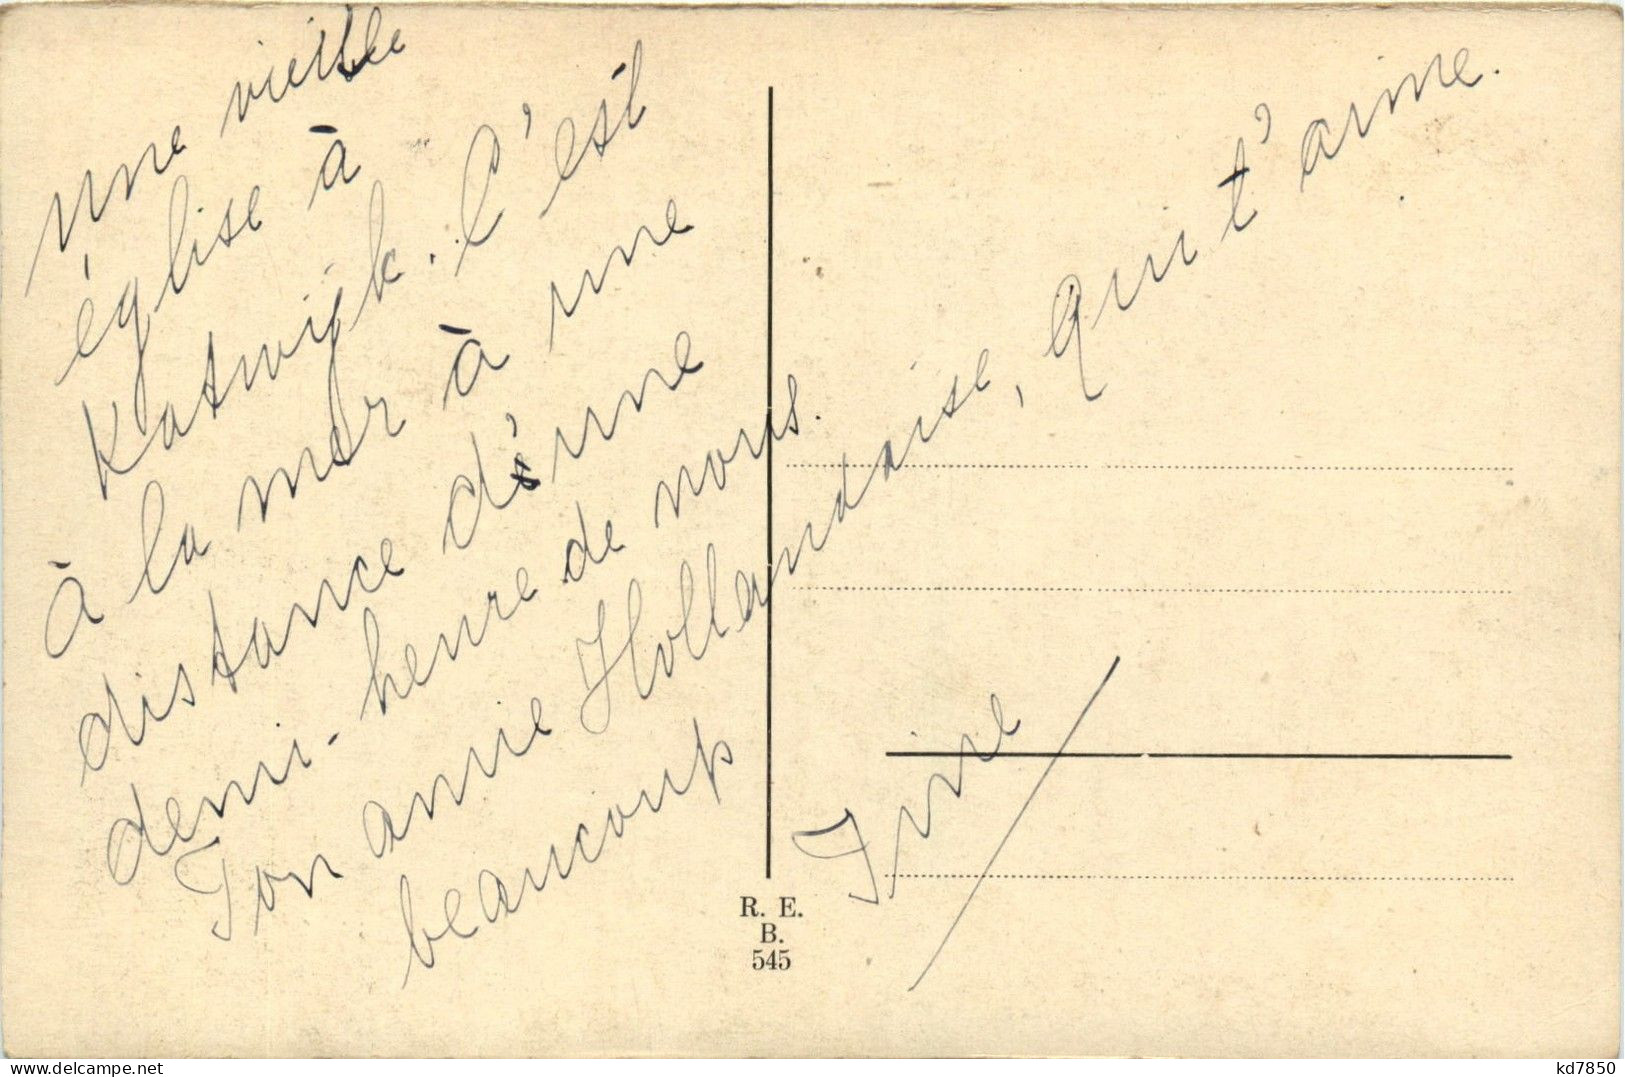 Une vieille
église à
Katwijk. C'est
à la mer à une
distance d'une
demi-heure de nous.
Ton amie Hollandaise, qui t'aime.
beaucoup
Irire
R. E.
B.
545
www.delcampe.com
kd7850